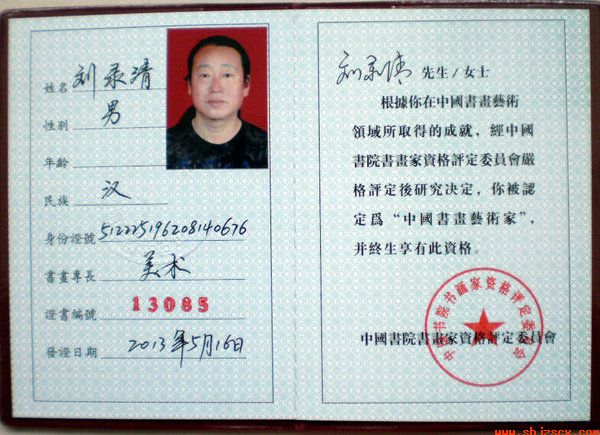 姓名 刘录清
性别 男
年齡
民族 汉
身份證號 512225196208140676
書畫專長 美术
證書編號 13085
發證日期 2013年5月16日
刘录清 先生/女士
根據你在中國書畫藝術
領域所取得的成就，經中國
書院書畫家資格評定委員會嚴
格評定後研究決定，你被認
定爲“中國書畫藝術家”，
并終生享有此資格。
中國書院書畫家資格評定委員會
中国书院书画家资格评定委员会
www.shizscx.com